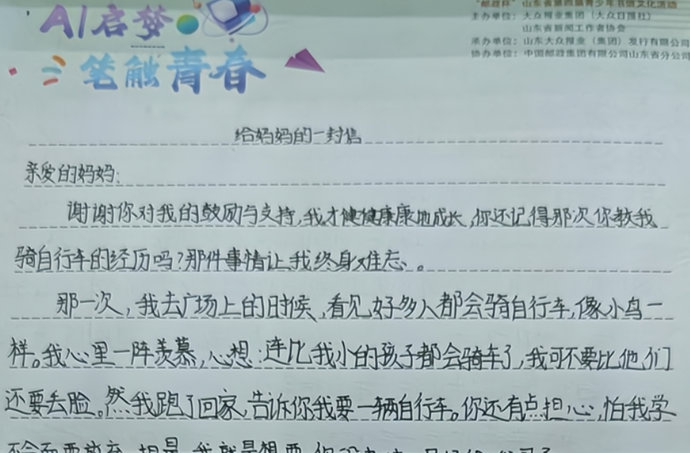 AI启梦
笔触青春
"邮政杯"山东省第四届青少年书信文化活动
主办单位：大众报业集团（大众日报社）
山东省新闻工作者协会
承办单位：山东大众报业（集团）发行有限公司
协办单位：中国邮政集团有限公司山东省分公司
给妈妈的一封信
亲爱的妈妈：
谢谢你对我的鼓励与支持，我才健健康康地成长，你还记得那次你教我
骑自行车的经历吗？那件事情让我终身难忘。
那一次，我去广场上的时候，看见好多人都会骑自行车，像小鸟一
样。我心里一阵羡慕，心想：连比我小的孩子都会骑车了，我可不要比他们
还要丢脸。然我跑了回家，告诉你我要一辆自行车。你还有点担心，怕我学
不会而要放弃，但是，我就是想要，你